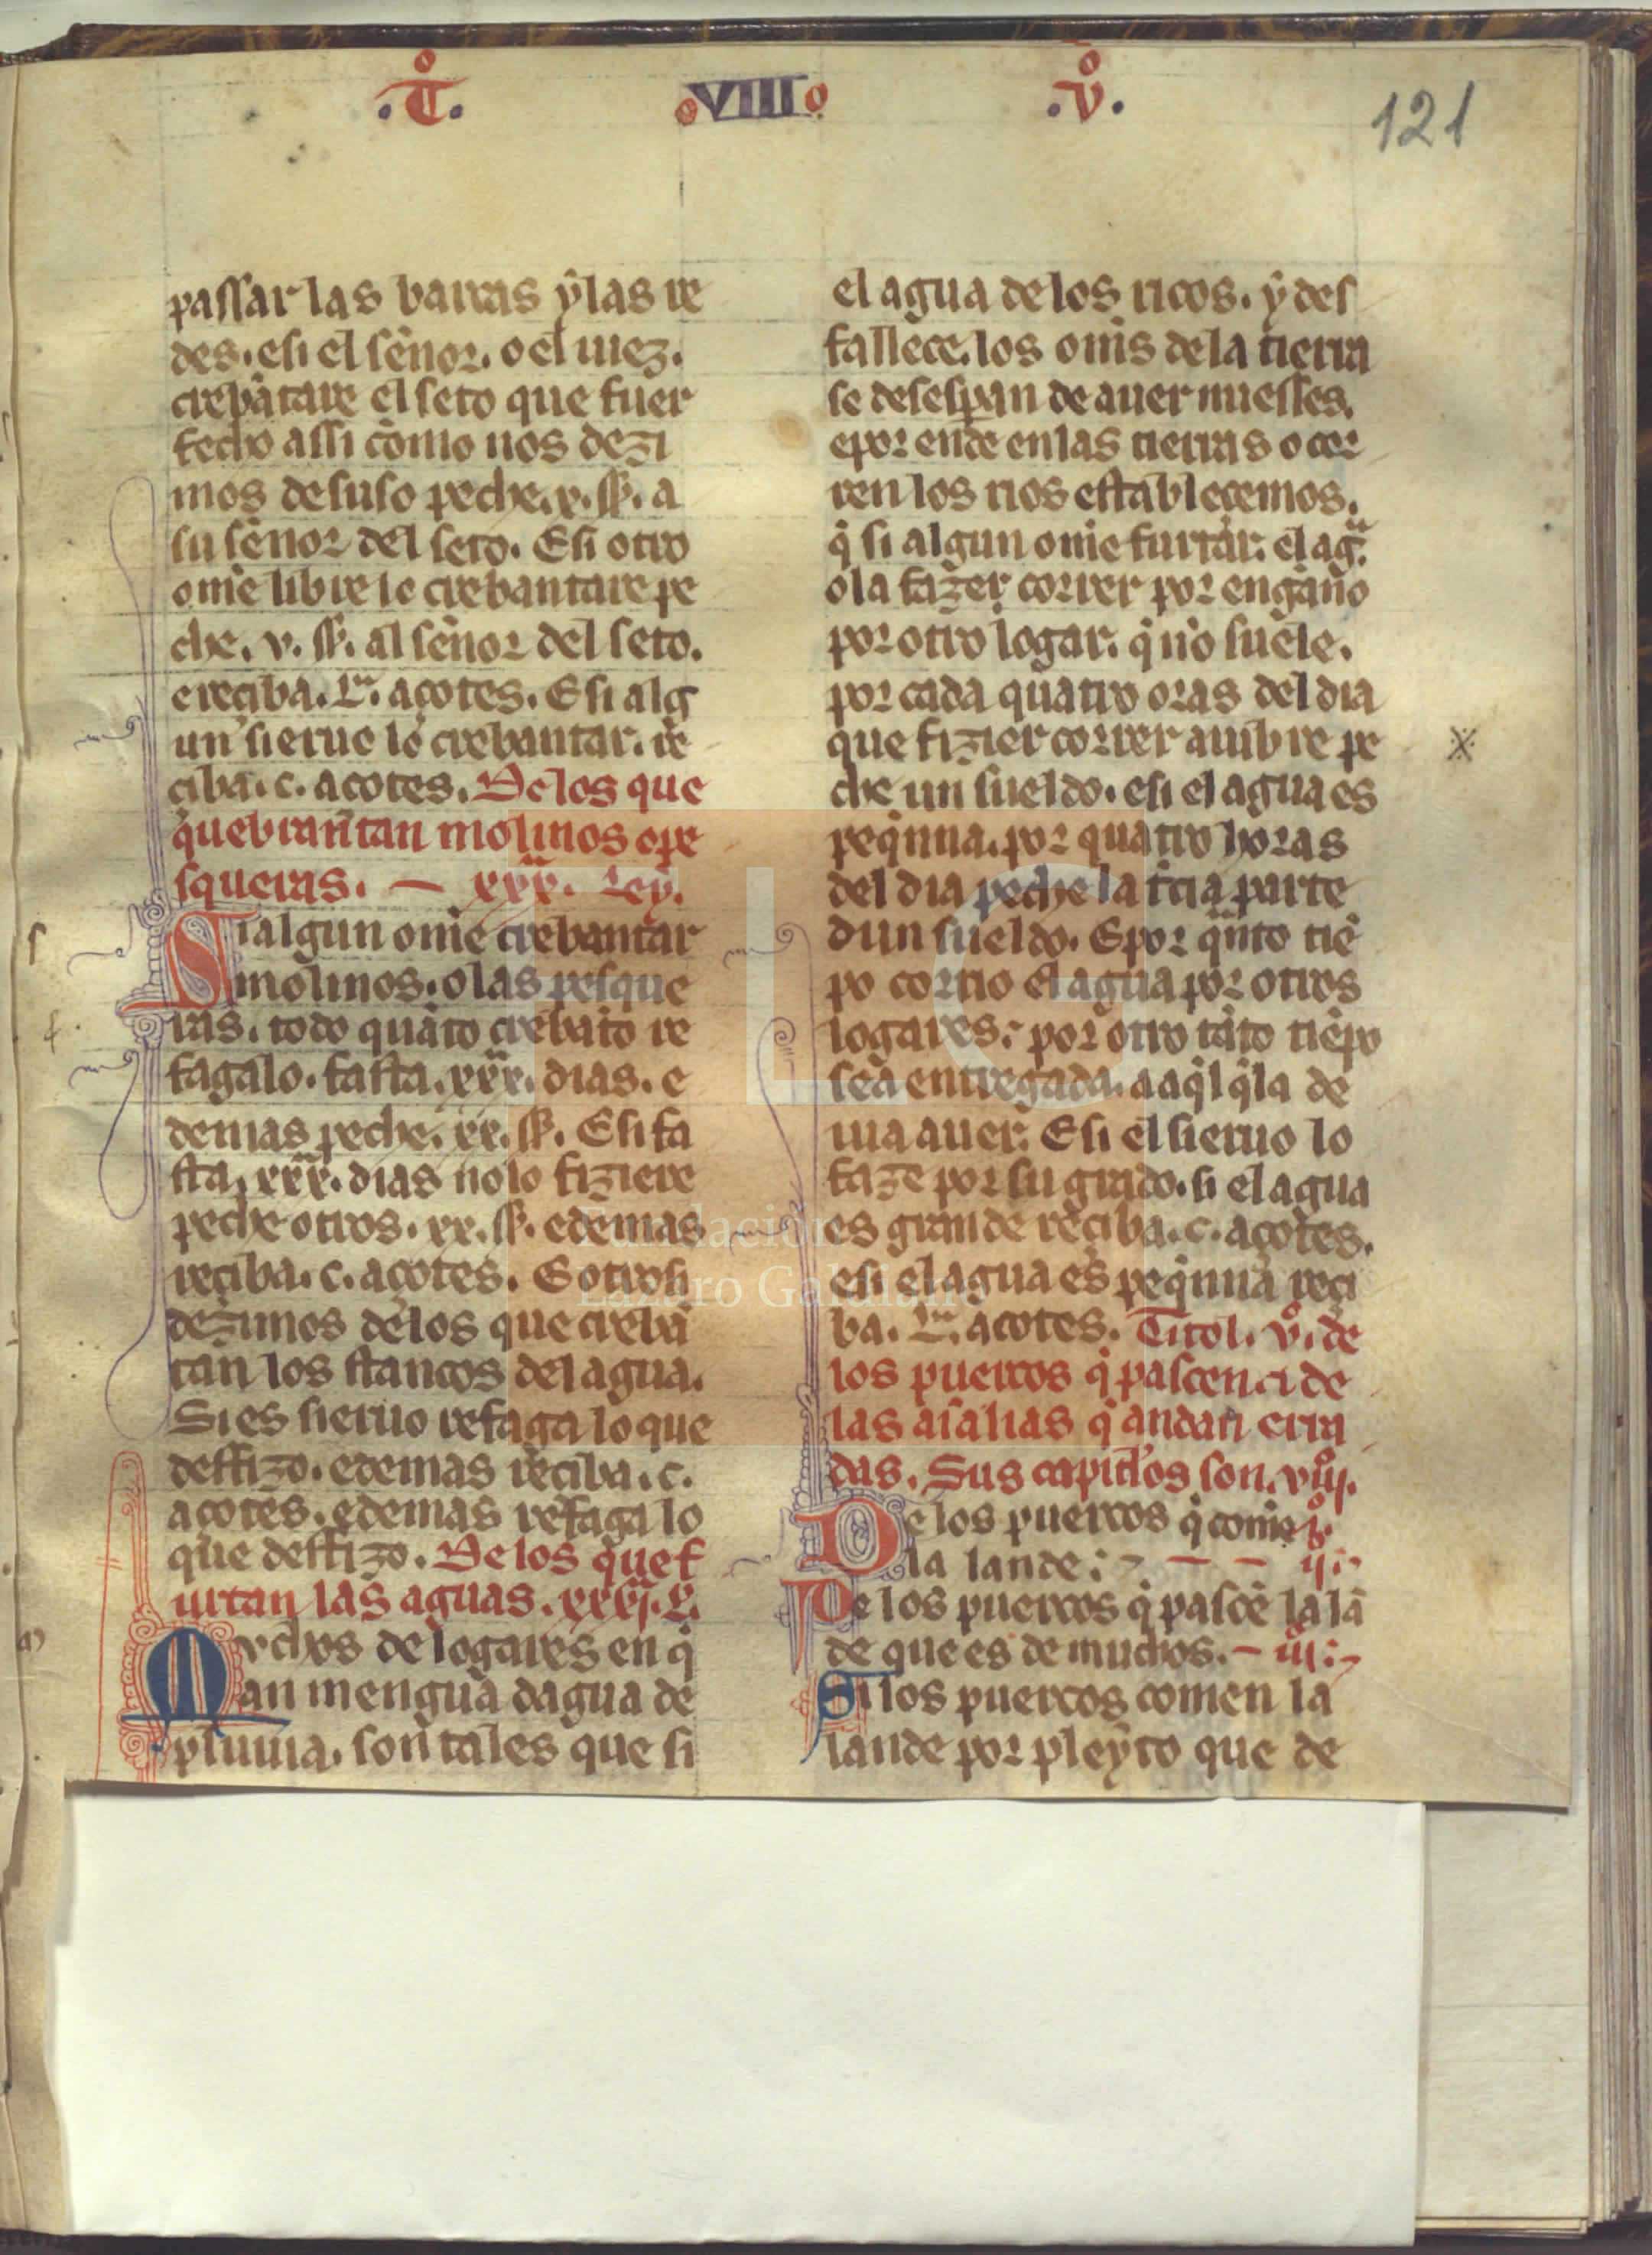 .Tº. VIII .vº. 121
passar las barcas ỹ las re
des. esi el señor. o el iuez.
crebãtare el seto que fuer
fecho assi como nos dezi
mos desuso peche. x. ss. a
su señor del seto. Esi otro
ome libre lo crebantare pe
che. v. ss. al señor del seto.
e reciba. L. açotes. Esi alg
un sieruo lo crebantar. re
ciba. c. açotes. De los que
quebrantan molinos o pe
squeras. — xxx. Ley.
Si algun ome crebantar
molinos. o las pesque
ras. todo quãto crebãto re
fagalo. fasta. xxx. dias. e
demas peche. xx. ss. Esi fa
sta. xxx. dias no lo fiziere
peche otros. xx. ss. e demas
reciba. c. açotes. E otrosi
dezimos de los que crebã
tan los stancos del agua.
Si es sieruo refaga lo que
desfizo. e demas reciba. c.
açotes. e demas refaga lo
que desfizo. De los que f
urtan las aguas. xxxj. L.
Mvchos de logares en q̃
an mengua dagua de
pluuia. son tales que si
el agua de los rios. ỹ des
fallece. los omes de la tierra
se desesperan de auer miesses.
e por ende en las tierras o cor
ren los rios establecemos.
q̃ si algun ome furtar. el agª.
o la fazer correr por engaño
por otro logar. q̃ no suele.
por cada quatro oras del dia
que fizier correr aiubre pe
che un sueldo. esi el agua es
peq̃nna. por quatro horas
del dia peche la tr̃cia parte
dun sueldo. E por qªnto tiẽ
po corrio el agua por otros
logares. por otro tãto tiẽpo
sea entregada. a aq̃l q̃ la de
uia auer. Esi el sieruo lo
faze por su grado. si el agua
es grande reciba. c. açotes.
esi el agua es peq̃nna reci
ba. L. açotes. Titol. vº. de
los puercos q̃ pascen. et de
las aĩalias q̃ andan erra
das. Sus capitl'os son. viij.
De los puercos q̃ comẽ
la lande
De los puercos q̃ pascẽ la lã
de que es de muchos. — iij
Si los puercos comen la
lande por pleỹto que de
FLG
Fundación
Lázaro Galdiano